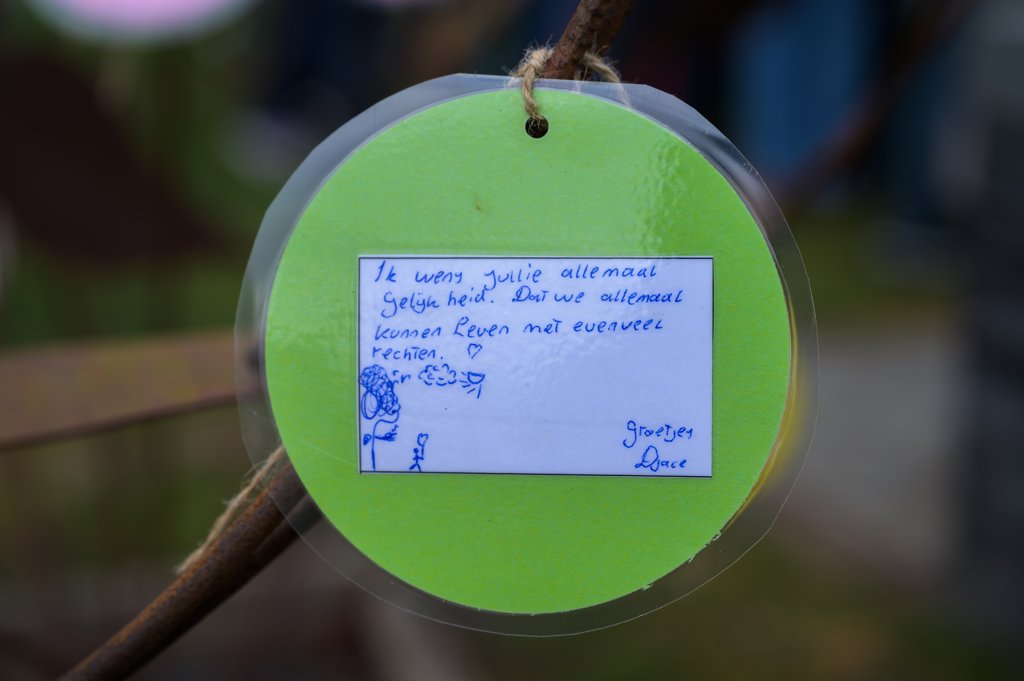 Ik wens jullie allemaal
gelijkheid. Dat we allemaal
kunnen leven met evenveel
rechten. ♡
Groetjes